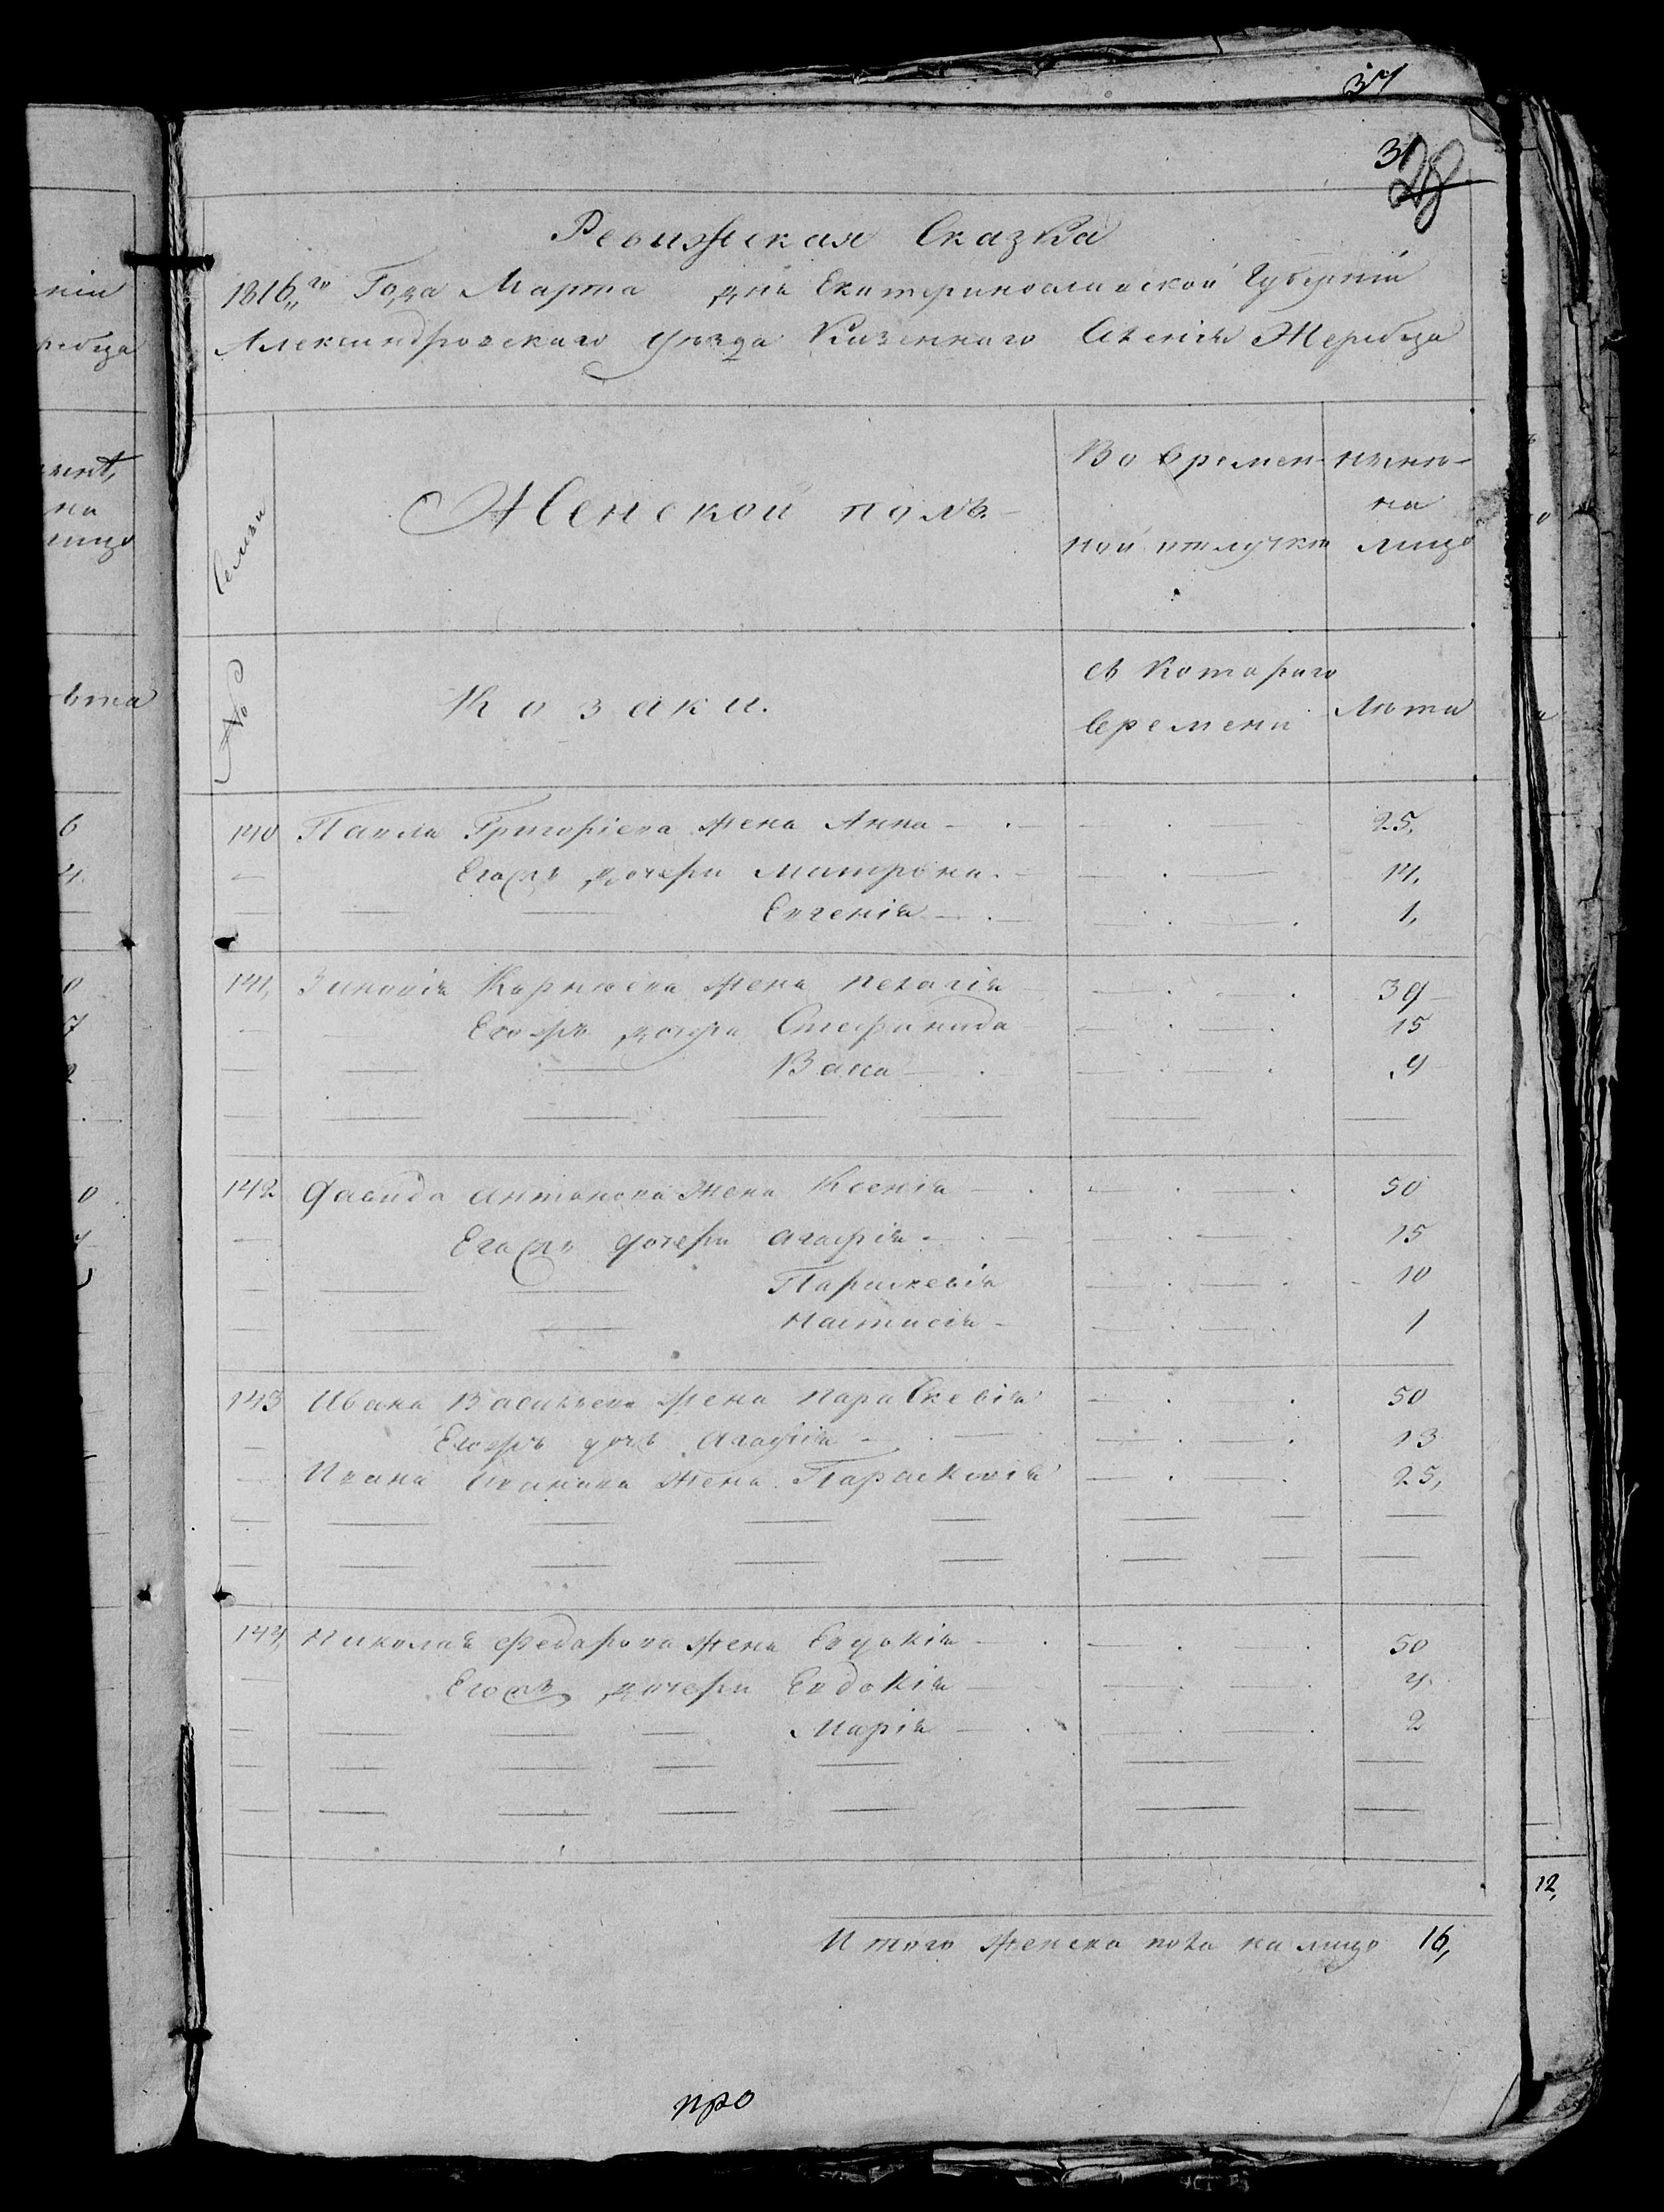 37
31
28
Ревижская Сказка
1816,,го Года Марта дня Екатеринославской Губерніи
Александровского уезда Казенного Селенія Жеребца
Семьи
Женской полъ.
Во времен-
ной отлучки
ныне
на
лицо
№
Козаки.
съ котораго
времени
Лета
140 Павла Григоріева жена Анна 25,
Егожъ дочери Матрона 14,
Евгенія 1,
141, Зиновія Карнеева жена Пелагія 39
Егожъ дочери Стефанида 15
Васса 9
142 Давида Антонова жена Ксенія 50
Егожъ дочери Агафія 15
Параскевія 10
Настасія 1
143 Ивана Васильева жена Параскевія 50
Егожъ дочь Агафія 13
Ивана Иванова жена Параскевія 25,
144, Николая Федорова жена Евдокія 50
Егожъ дочери Евдокія 4
Марія 2
Итого женска пола на лицо 16,
про
ніи
ребца
на
лицо
ѣта
6
4
0
7
2
0
12,